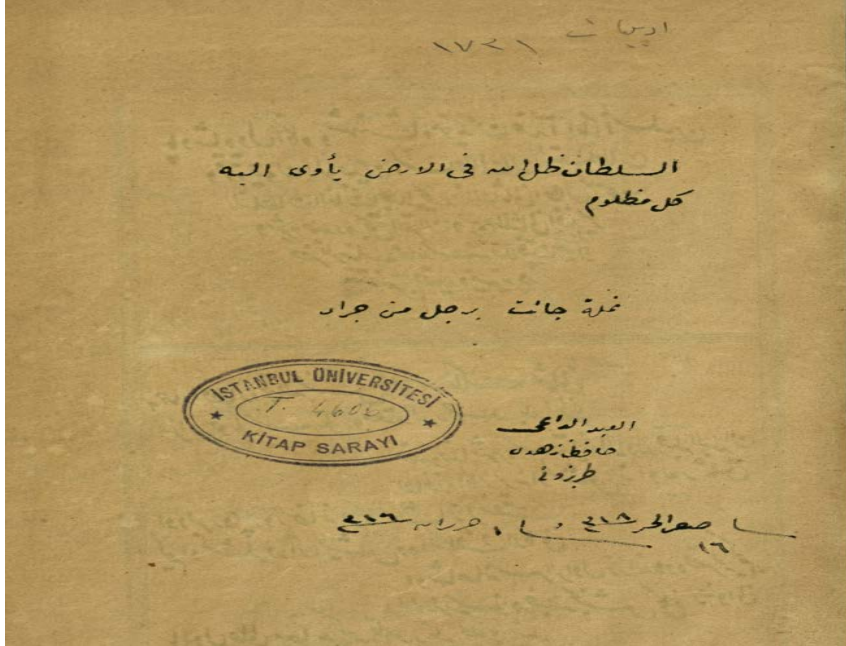 ادبيات ١٧٣١
السلطان ظل الله فى الارض يأوى اليه
كل مظلوم
نملة جائت برجل من جراد
İSTANBUL ÜNİVERSİTESİ
T. 4602
KİTAP SARAYI
العبد الداعى
حافظ زهدى
طرزونى
صفر الخير ٣١٨ ١ حزيران ٣١٦
١٦